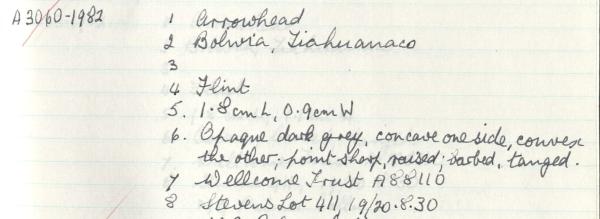 A3060-1982 1 Arrowhead
2 Bolivia, Tiahuanaco
3
4 Flint
5. 1.8cm L, 0.9cm W
6. Opaque dark grey, concave one side, convex
the other; point sharp, raised; barbed, tanged.
7 Wellcome Trust A88110
8 Stevens Lot 411, 19/20.8.30